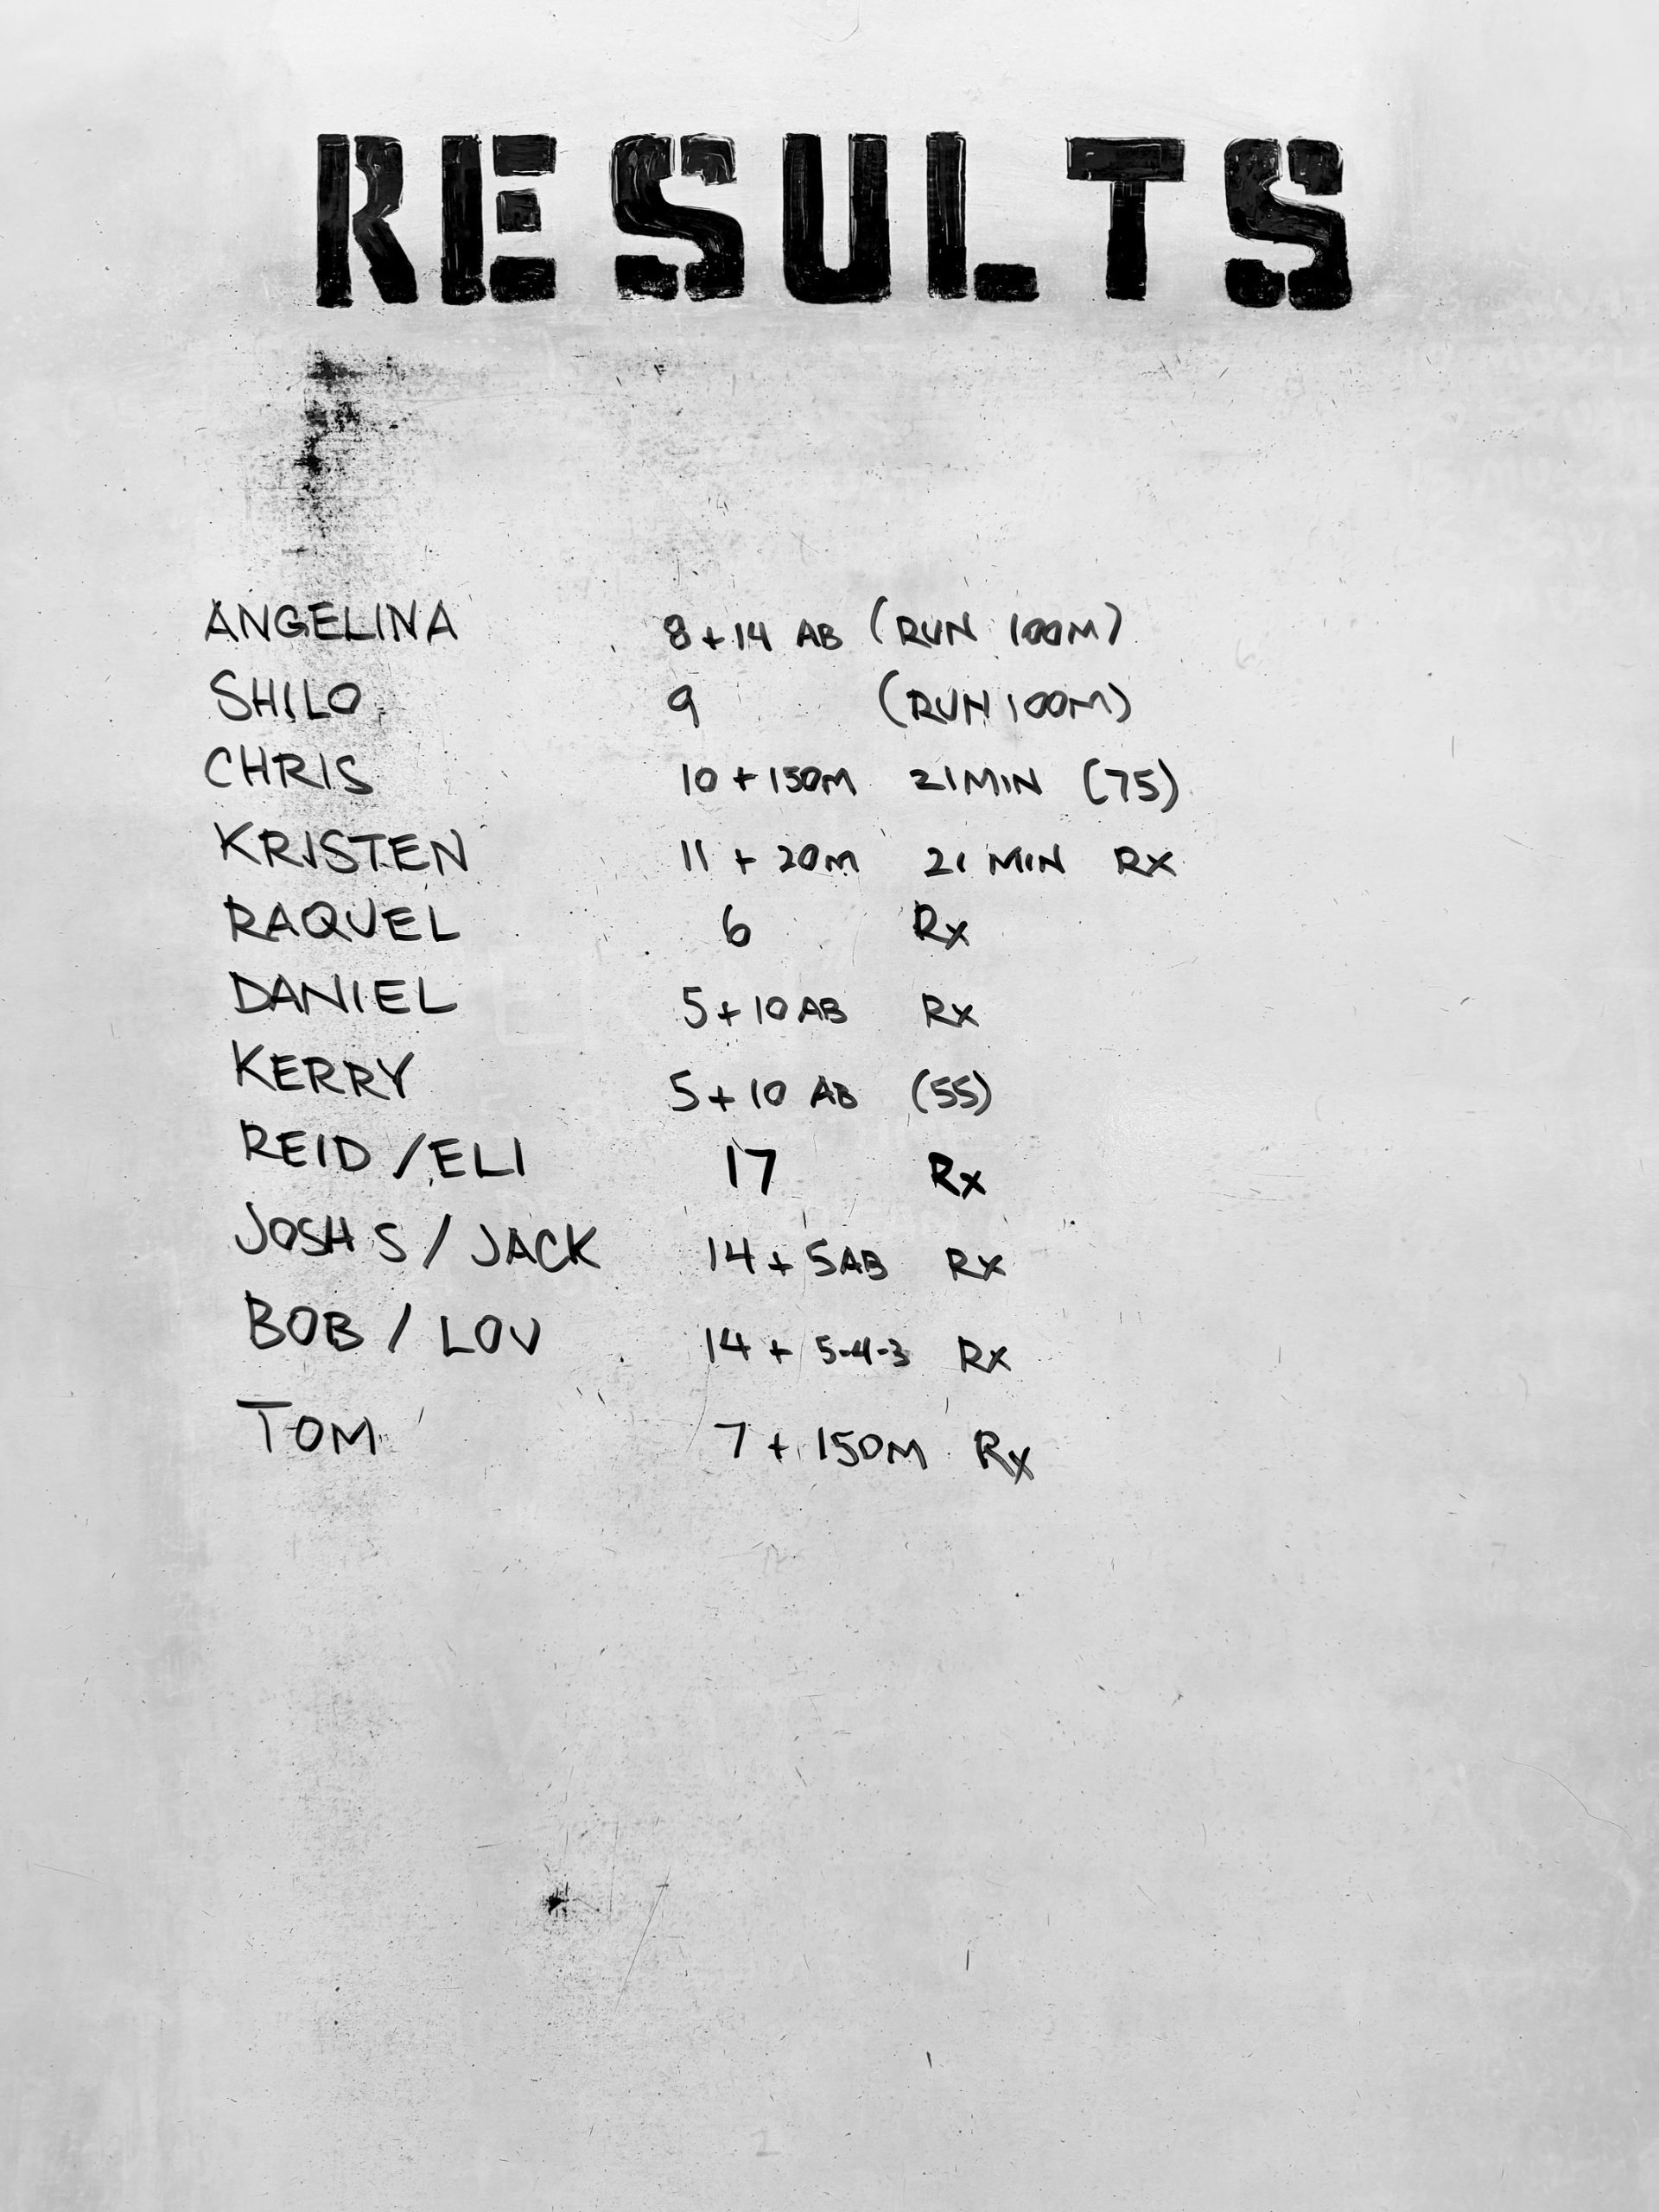 RESULTS
ANGELINA 8+14 AB (RUN 100M)
SHILO 9 (RUN 100M)
CHRIS 10 + 150M 21MIN (75)
KRISTEN 11 + 20M 21 MIN RX
RAQUEL 6 Rx
DANIEL 5+10 AB Rx
KERRY 5+10 AB (55)
REID /ELI 17 Rx
JOSH S / JACK 14 + 5AB Rx
BOB / LOU 14 + 5-4-3 Rx
TOM 7 + 150M Rx